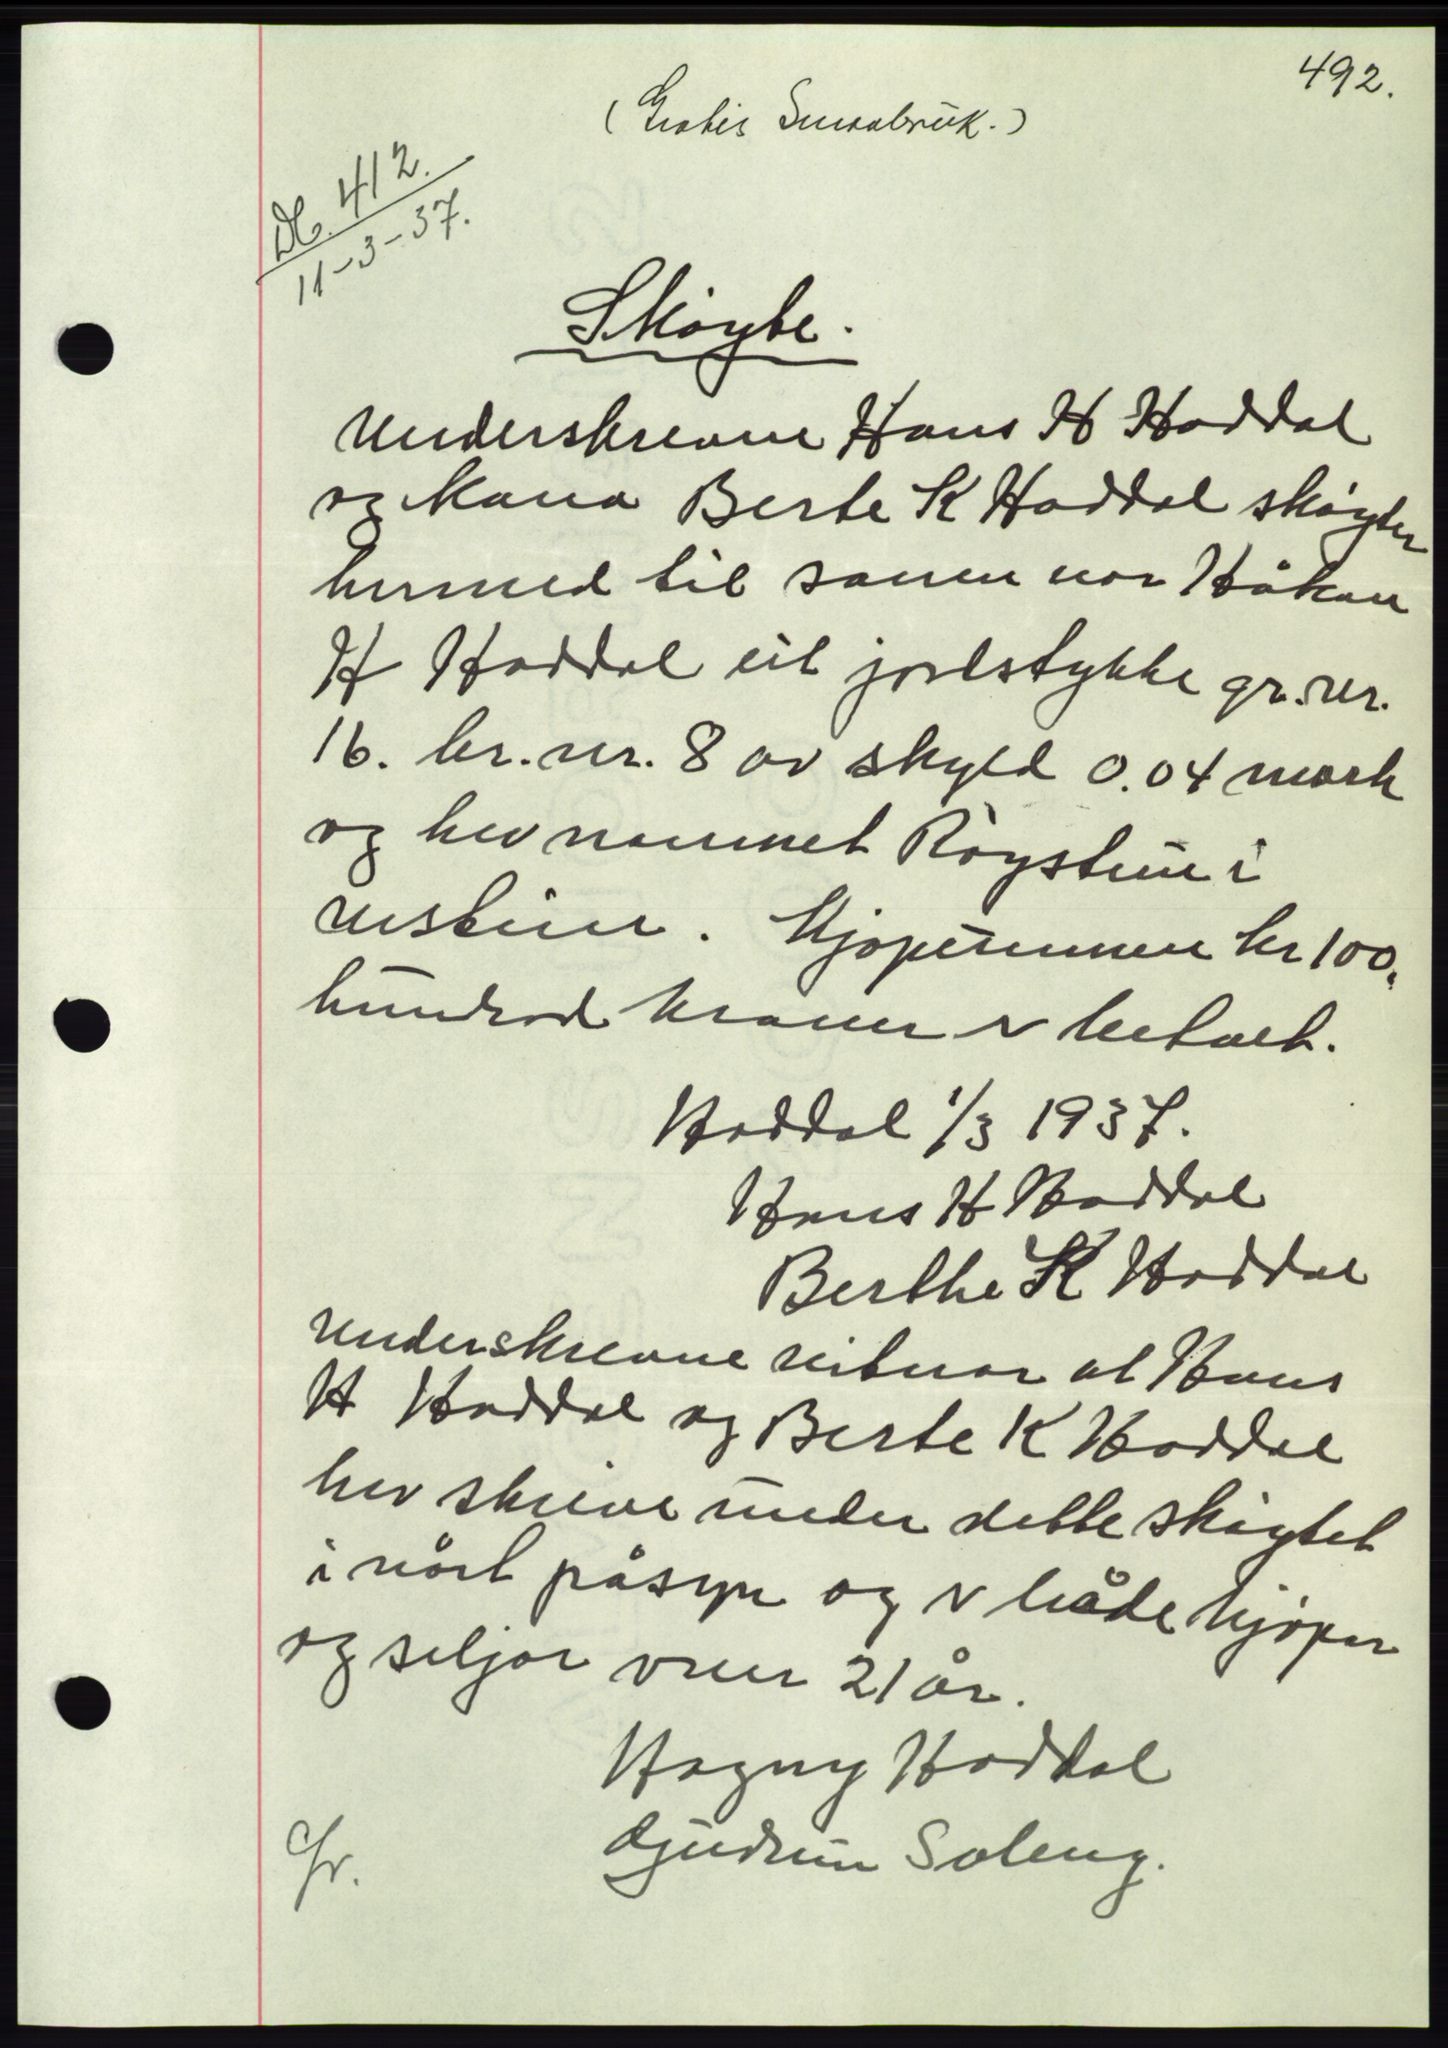 492.
(Gratis Småbruk.)
Db. 412.
11-3-37.
Skøyte.
Underskrevne Hans H Haddal
og Kona Berte K Haddal skøyter
hermed til sonen vor Håkon
H Haddal eit jordstykke gr.nr.
16. br.nr. 8 av skyld 0.04 mark
og hev namnet Røystein i
Kjøpesummen kr 100,
hundrad kroner er betalt.
Haddal 1/3 1937.
Hans H Haddal
Berthe K Haddal
Underskrevne vitnar at Hans
H Haddal og Berte K Haddal
hev skrive under dette skøytet
i vårt påsyn og er både kjøpar
og seljar over 21 år.
Hagny Haddal
Gjudrun Soleng.